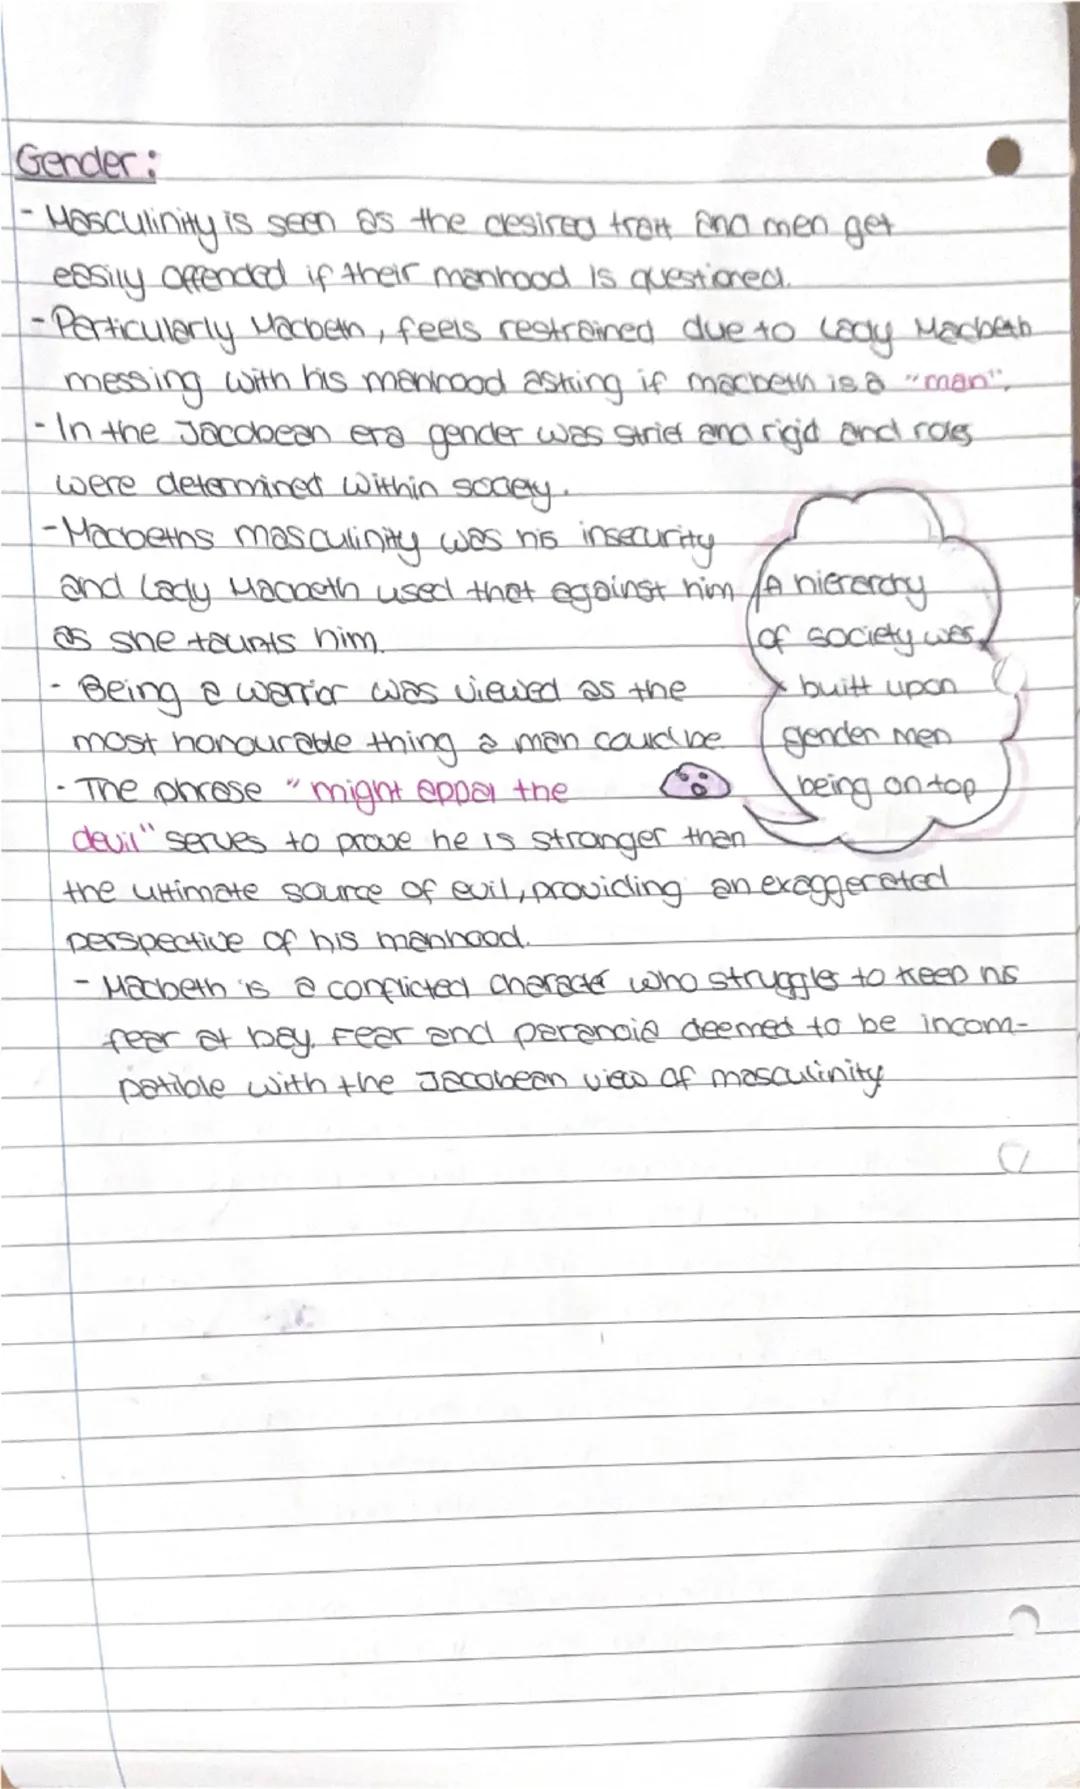 Gender:
- Masculinity is seen as the desired trait and men get
easily offended if their manhood is questioned.
- Particularly Macbeth, feels restrained due to Lady Macbeth
messing with his manhood asking if macbeth is a "man".
- In the Jacobean era gender was strict and rigid and roles
were determined within society.
- Macbeths masculinity was his insecurity
and Lady Macbeth used that against him
as she taunts him.
- Being a warrior was viewed as the
most honourable thing a man could be
- The phrase "might appal the
devil" serves to prove he is stronger than
the ultimate source of evil, providing an exaggerated
perspective of his manhood.
- Macbeth is a conflicted character who struggles to keep his
fear at bay. Fear and paranoia deemed to be incom-
patible with the Jacobean view of masculinity
A hierarchy
of society was
built upon
gender men
being on top